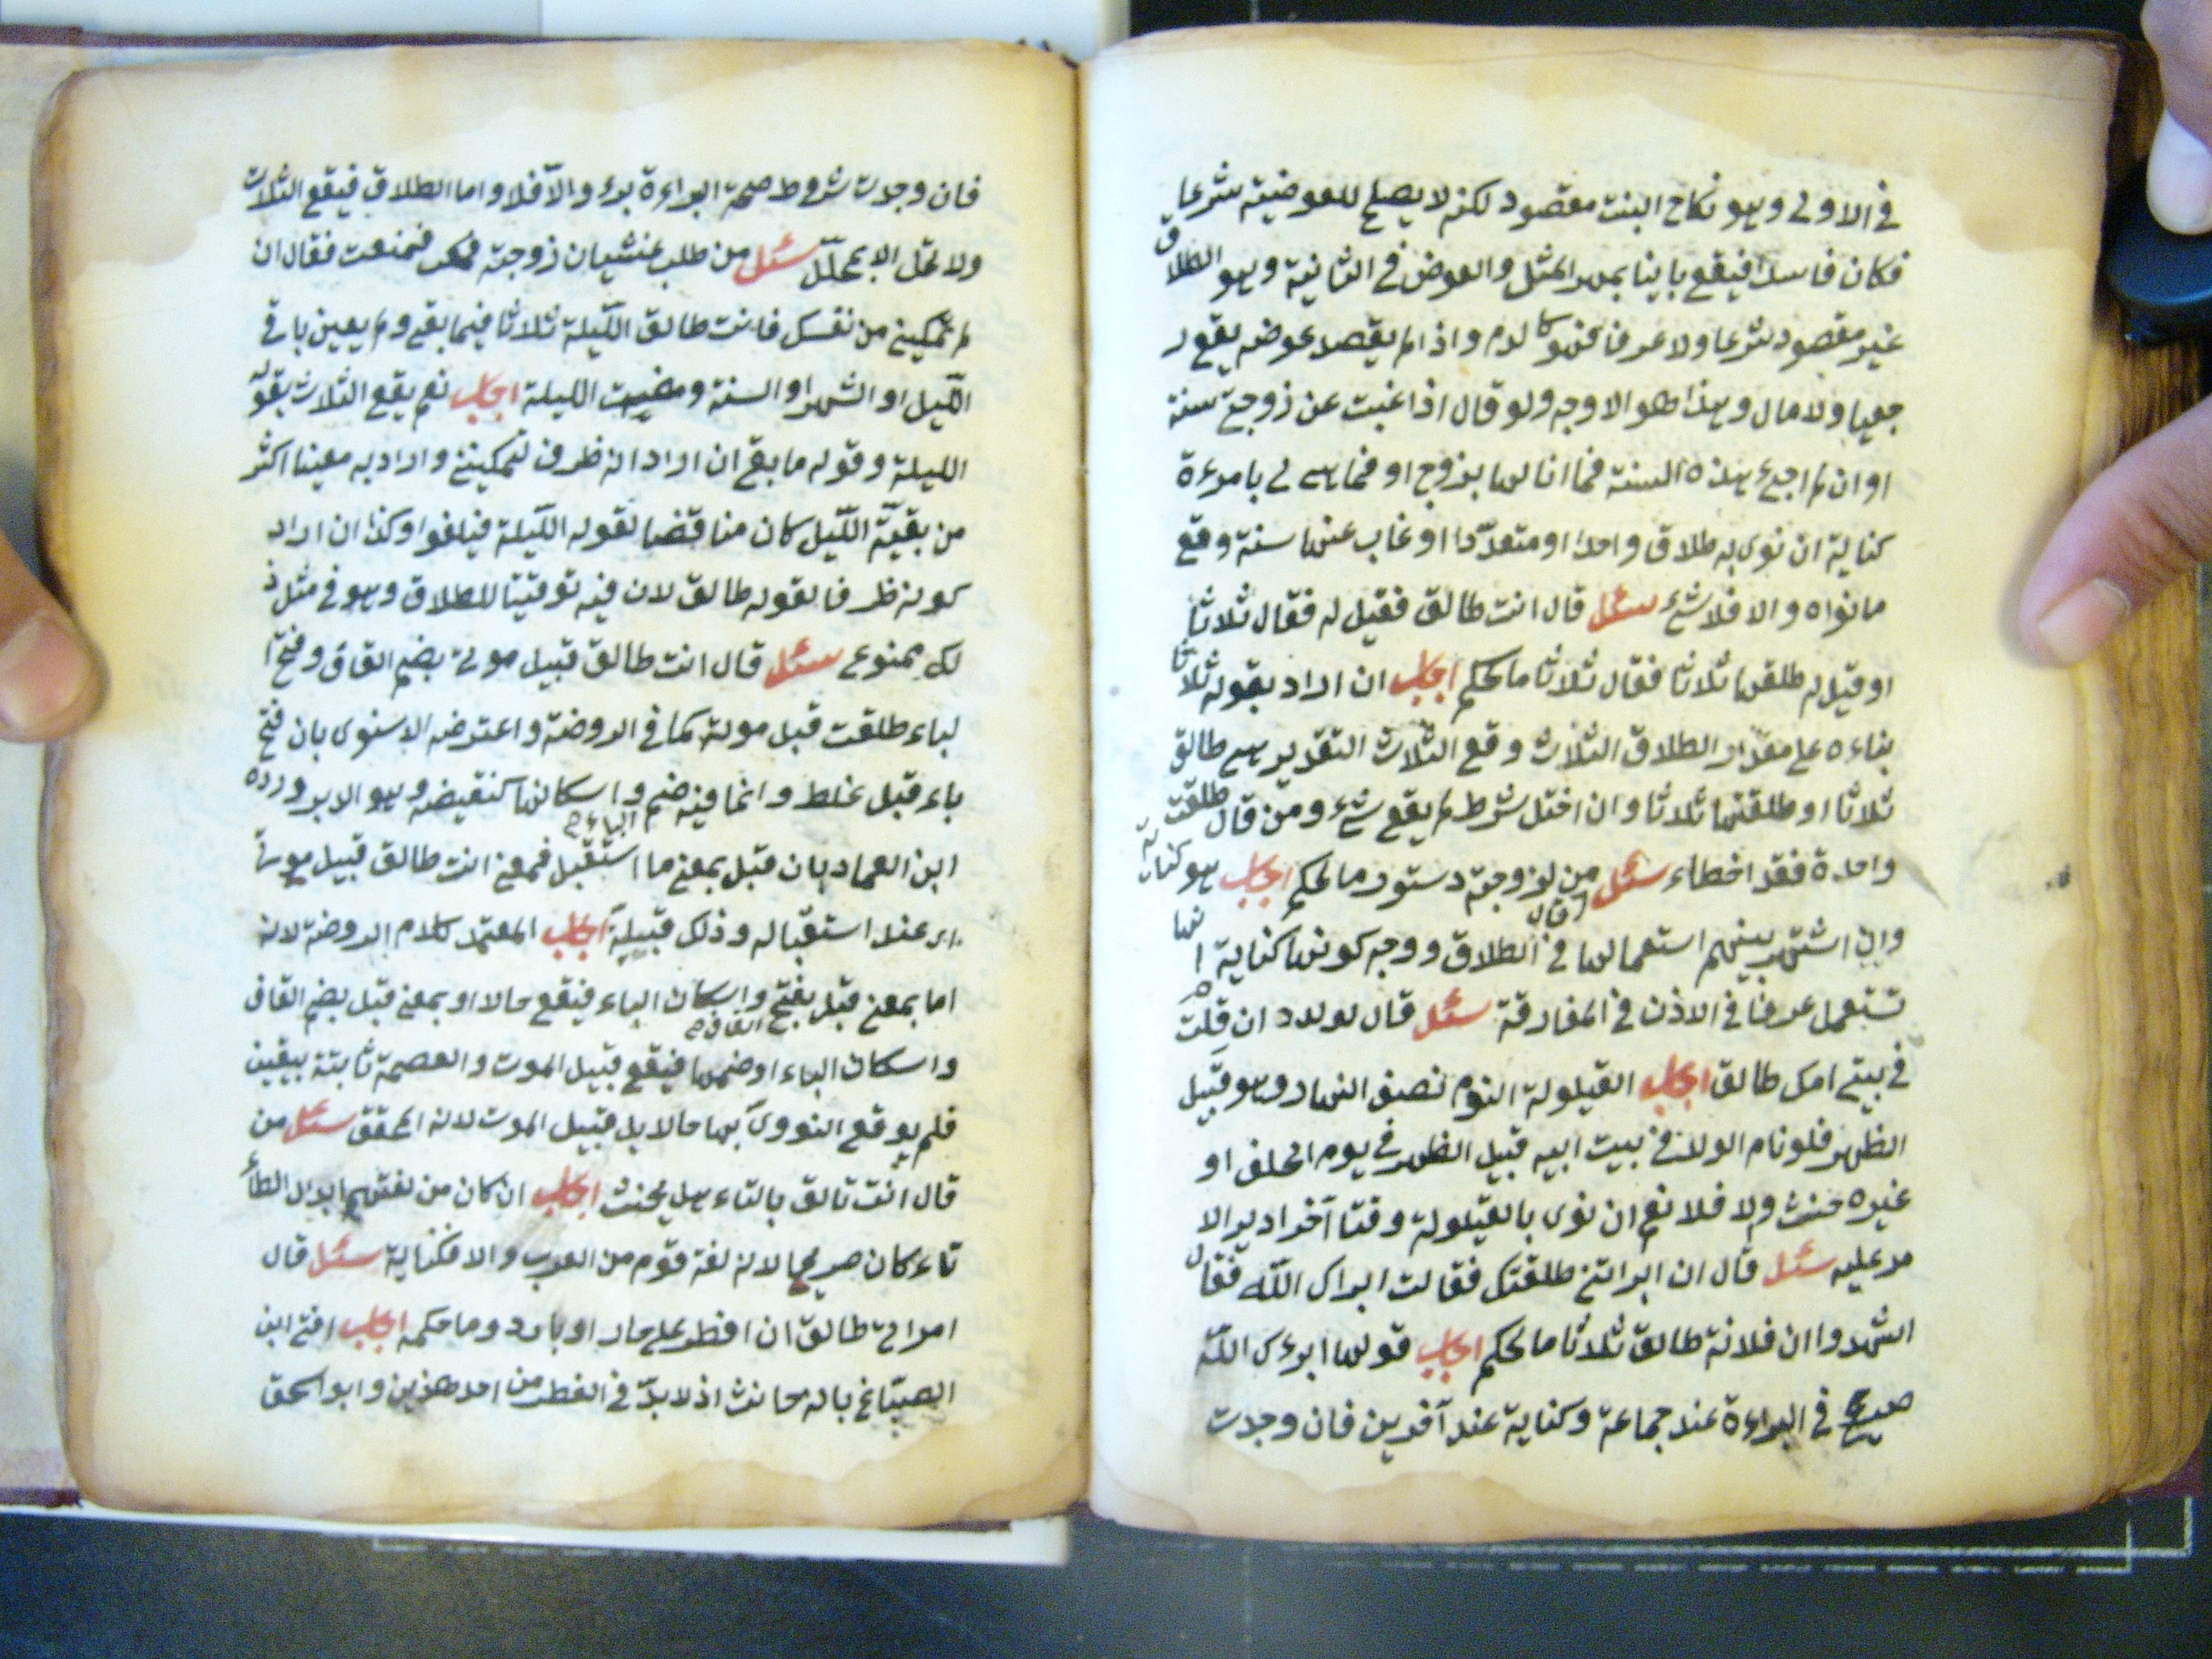 في الاولى وهو نكاح البنت مقصود لكنه لا يصلح للعوضية شرعا
فكان فاسدا فيقع باينا بمهر المثل والعوض في الثانية وهو الطلاق
غير مقصود شرعا ولا عرفا فهو كالدم واذا لم يقصد عوضه يقع ر
جعيا ولا مال وهذا هو الاوجه ولو قال اذا غبت عن زوجتي سنة
او ان لم اجئ هذه السنة فما انا لها بزوج او فما هي لي بامرءة
كناية ان نوى به طلاق واحدا او متعددا او غاب عنها سنة وقع
ما نواه والا فلا شئ سئل قال انت طالق فقيل له فقال ثلاثا
او قيل له طلقها ثلاثا فقال ثلاثا ما الحكم اجاب ان اراد بقوله ثلاثا
بناءه على مقدار الطلاق الثلاث وقع الثلاث التقدير هي طالق
ثلاثا او طلقتها ثلاثا وان اختل شرط لم يقع شئ ومن قال طلقت
واحدة فقد اخطاء سئل من قال لزوجته دستور ما الحكم اجاب هو كناية
وان اشتهر بينهم استعمالها في الطلاق ووجه كونها كناية انها
تستعمل عرفا في الاذن في المفارقة سئل قال لولده ان قلت
في بيتي امك طالق اجاب القيلولة النوم نصف النهار وهو قبيل
الظهر فلو نام الولد في بيت ابيه قبيل الظهر في يوم الحلف او
غيره حنث والا فلا نعم ان نوى بالقيلولة وقتا آخر ادير الا
مر عليه سئل قال ان ابراتني طلقتك فقالت ابراك الله فقال
اشهدوا ان فلانة طالق ثلاثا ما الحكم اجاب قولها ابرءك الله
صريح في البراءة عند جماعة وكناية عند آخرين فان وجدت
فان وجدت شروط صحة البراءة برء والا فلا واما الطلاق فيقع الثلاث
ولا تحل الا بمحلل سئل من طلب غشيان زوجته فمنعت فقال ان
لم تمكيني من نفسك فانت طالق الليلة ثلاثا فيما بقي ولم يعين باقي
الليل او الشهر او السنة ومضيت الليلة اجاب نعم يقع الثلاث بقوله
الليلة وقوله ما بقي ان اراد انه ظرف لتمكينني واراد به معينا اكثر
من بقية الليل كان مناقضا لقوله الليلة فيلغوا وكذا ان اراد
كونه ظرفا لقوله طالق لان فيه توقيتا للطلاق وهو في مثل ذ
لك ممنوع سئل قال انت طالق قبيل موتي بضم القاف وفتح ا
لباء طلقت قبل موته كما في الروضة واعترضه الاسنوى بان فتح
باء قبل غلط وانما فيه ضم الباء واسكانها كنقيضه وهو الدبر ورده
ابن العماد بان قبل بمعنى ما استقبل فمعنى انت طالق قبيل موتي
اى عند استقباله وذلك قبيله اجاب المعتمد كلام الروضة لانه
اما بمعنى قبل بفتح القاف واسكان الباء فيقع حالا او بمعنى قبل بضم القاف
واسكان الباء او ضمها فيقع قبيل الموت والعصمة ثابتة بيقين
فلم يوقع النووى بها حالا بل قبيل الموت لانه المحقق سئل من
قال انت تالق بالتاء هل يحنث اجاب ان كان من لغتهم ابدال الطاء
تاء كان صريحا لانه لغة قوم من العرب والا فكناية سئل قال
امراتي طالق ان افطر على حار او بارد وما حكمه اجاب افتى ابن
الصباغ بانه حانث اذ لا بد في الفطر من احد هذين وابو اسحق